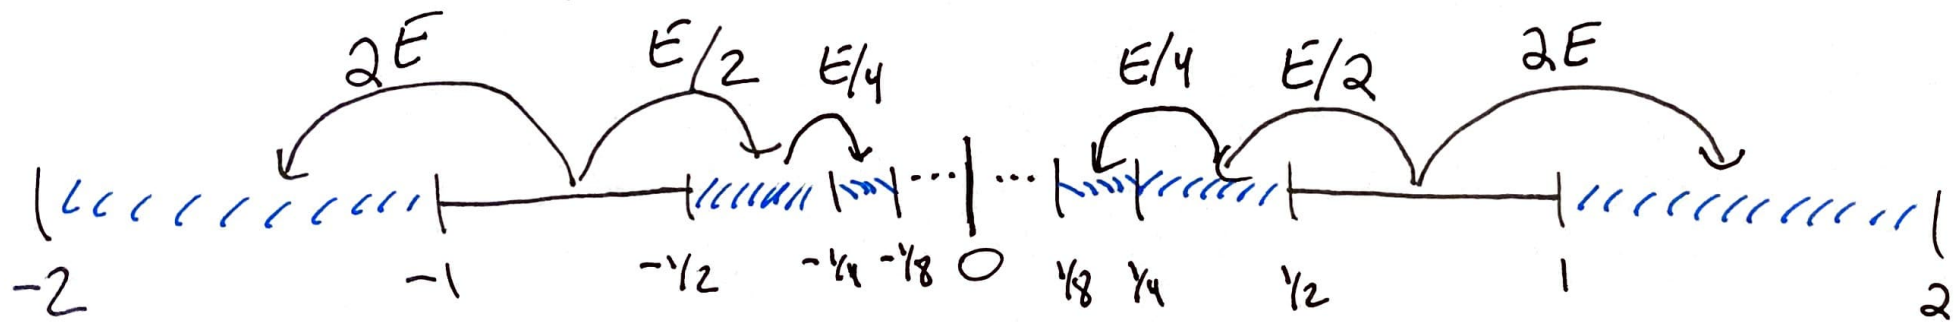 2E E/2 E/4 E/4 E/2 2E
-2 -1 -1/2 -1/4 -1/8 0 1/8 1/4 1/2 1 2